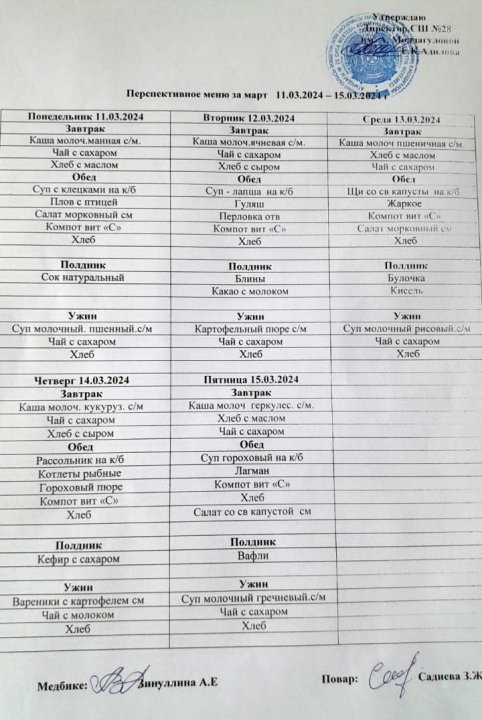 Утверждаю
Директор СШ №28
им. А. Молдагуловой
Е.К.Адилова
Перспективное меню за март 11.03.2024 – 15.03.2024 г
Понедельник 11.03.2024
Завтрак
Каша молоч.манная с/м.
Чай с сахаром
Хлеб с маслом
Обед
Суп с клецками на к/б
Плов с птицей
Салат морковный см
Компот вит «С»
Хлеб
Полдник
Сок натуральный
Ужин
Суп молочный. пшенный.с/м
Чай с сахаром
Хлеб
Вторник 12.03.2024
Завтрак
Каша молоч.ячневая с/м.
Чай с сахаром
Хлеб с сыром
Обед
Суп - лапша на к/б
Гуляш
Перловка отв
Компот вит «С»
Хлеб
Полдник
Блины
Какао с молоком
Ужин
Картофельный пюре с/м
Чай с сахаром
Хлеб
Среда 13.03.2024
Завтрак
Каша молоч пшеничная с/м
Хлеб с маслом
Чай с сахаром
Обед
Щи со св капусты на к/б
Жаркое
Компот вит «С»
Салат морковный см
Хлеб
Полдник
Булочка
Кисель
Ужин
Суп молочный рисовый.с/м
Чай с сахаром
Хлеб
Четверг 14.03.2024
Завтрак
Каша молоч. кукуруз. с/м
Чай с сахаром
Хлеб с сыром
Обед
Рассольник на к/б
Котлеты рыбные
Гороховый пюре
Компот вит «С»
Хлеб
Полдник
Кефир с сахаром
Ужин
Вареники с картофелем см
Чай с молоком
Хлеб
Пятница 15.03.2024
Завтрак
Каша молоч геркулес. с/м.
Хлеб с маслом
Чай с сахаром
Обед
Суп гороховый на к/б
Лагман
Компот вит «С»
Хлеб
Салат со св капустой см
Полдник
Вафли
Ужин
Суп молочный гречневый.с/м
Чай с сахаром
Хлеб
Медбике: Зинуллина А.Е
Повар: Садиева З.Ж